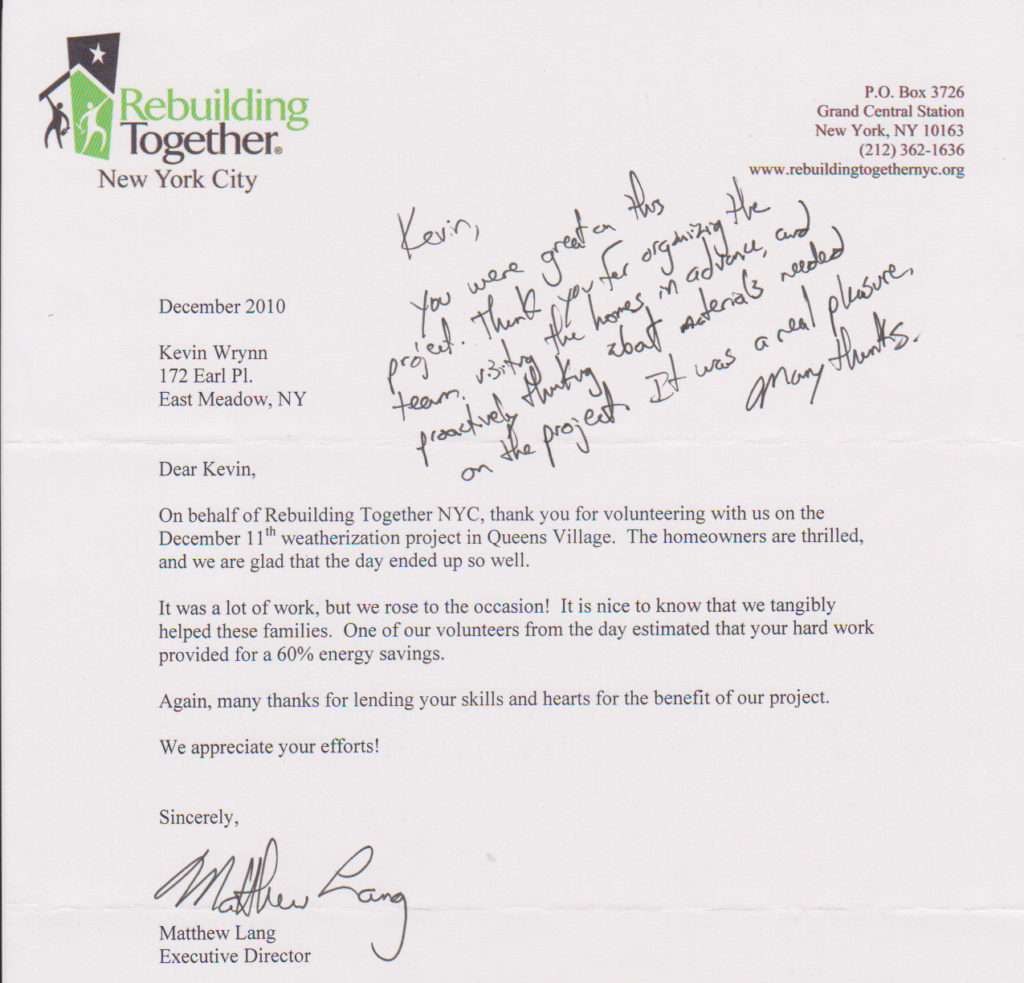 Rebuilding
Together®
New York City
P.O. Box 3726
Grand Central Station
New York, NY 10163
(212) 362-1636
www.rebuildingtogethernyc.org
Kevin,
You were great on this
project. Thank you for organizing the
team, visiting the homes in advance, and
proactively thinking about materials needed
on the project. It was a real pleasure.
Many thanks.
December 2010
Kevin Wrynn
172 Earl Pl.
East Meadow, NY
Dear Kevin,
On behalf of Rebuilding Together NYC, thank you for volunteering with us on the
December 11th weatherization project in Queens Village. The homeowners are thrilled,
and we are glad that the day ended up so well.
It was a lot of work, but we rose to the occasion! It is nice to know that we tangibly
helped these families. One of our volunteers from the day estimated that your hard work
provided for a 60% energy savings.
Again, many thanks for lending your skills and hearts for the benefit of our project.
We appreciate your efforts!
Sincerely,
Matthew Lang
Matthew Lang
Executive Director